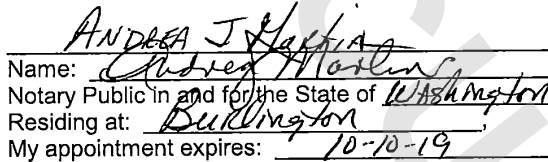 ANDREA J Martin
Name: Andrea Martin
Notary Public in and for the State of Washington
Residing at: Burlington,
My appointment expires: 10-10-19